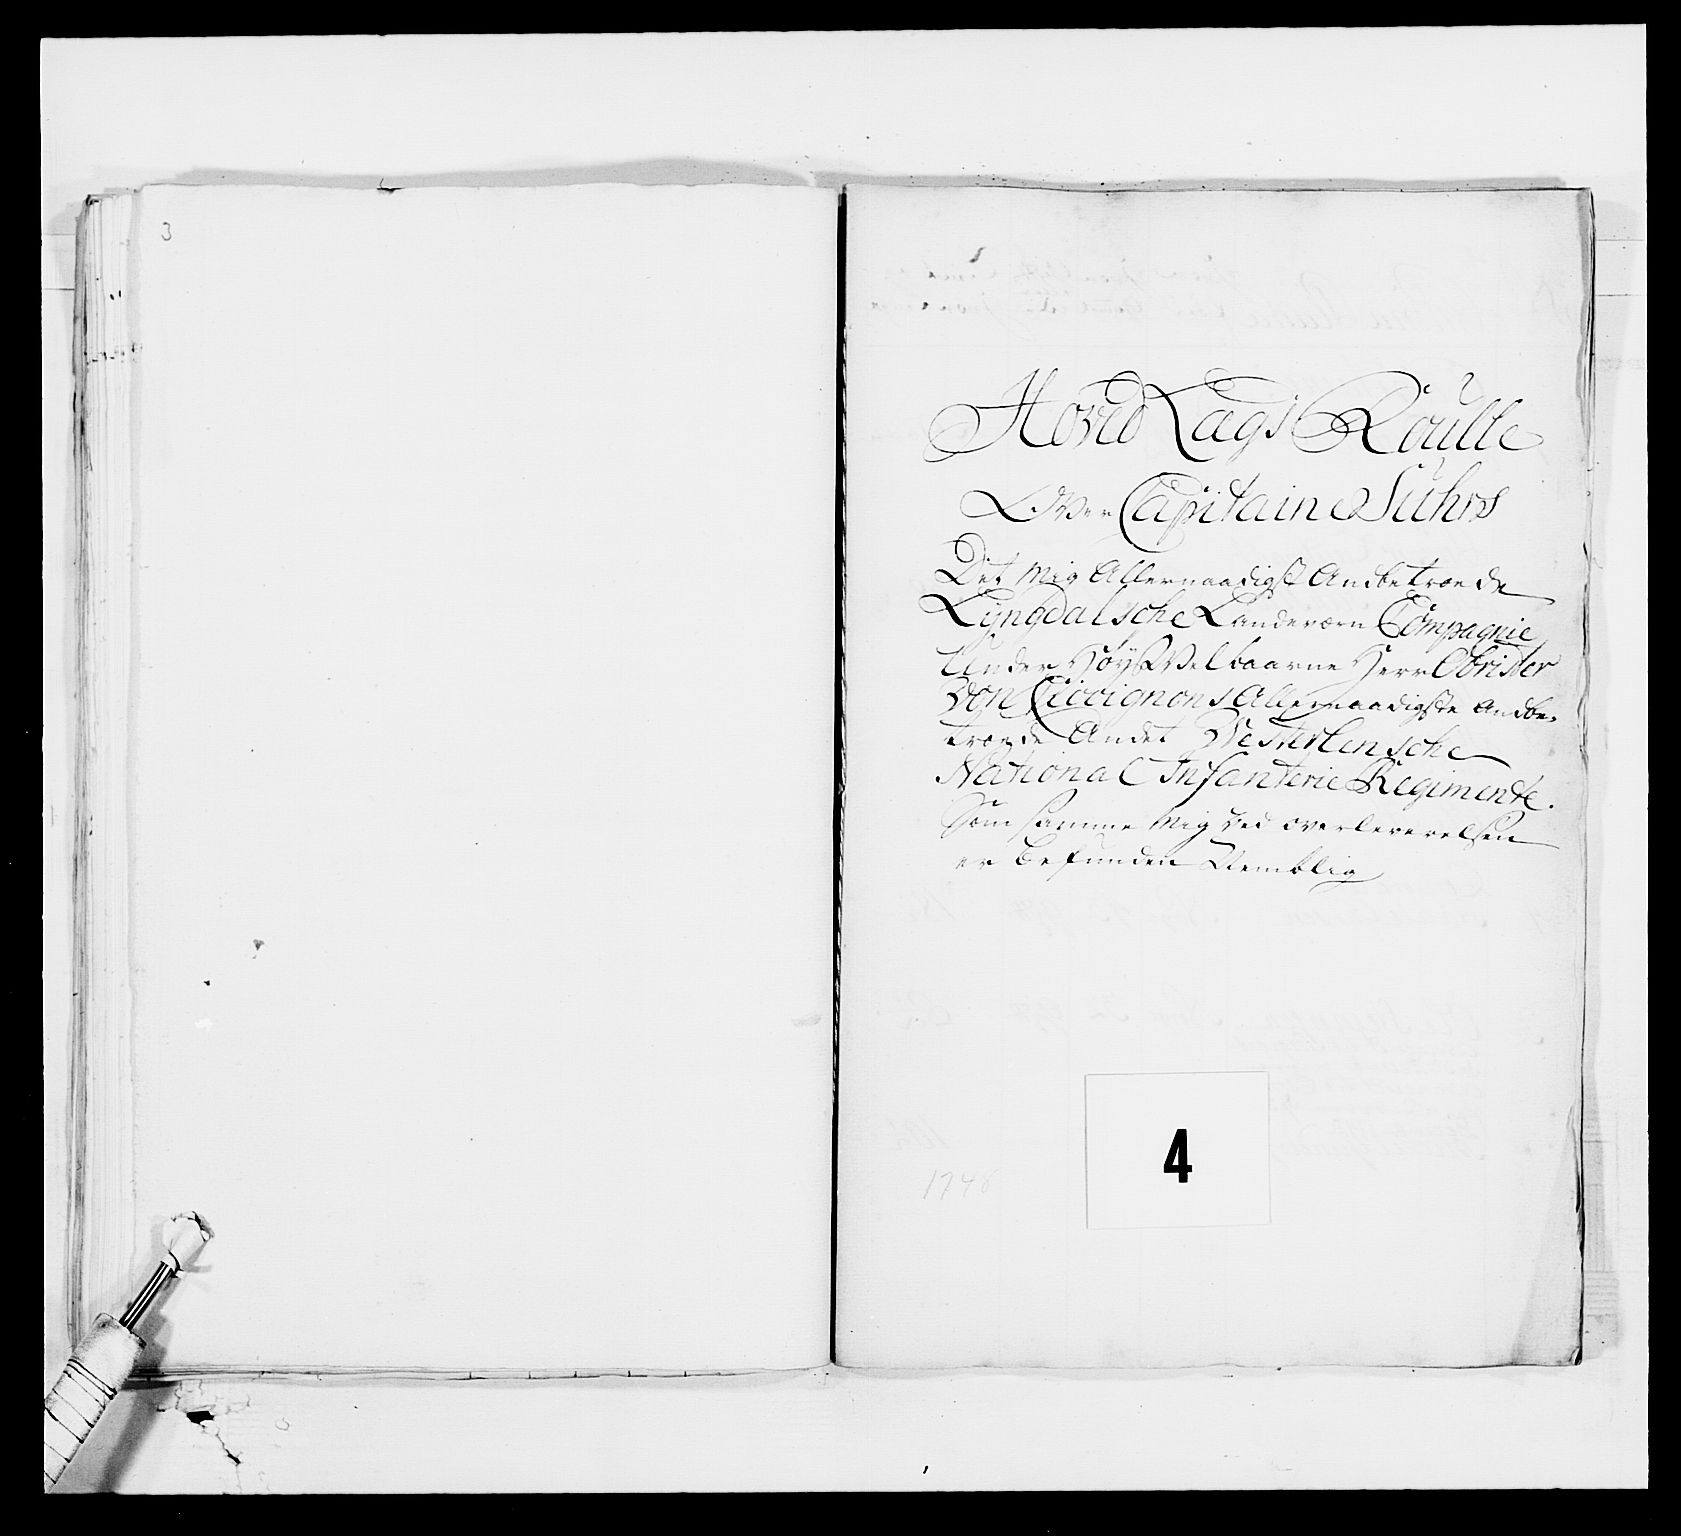 3
Hoved Lags Roulle
Over Capitaine Suhrs
Det Mig Allernaadigst Andbetroede
Lyngdalsche Landeværn Compagnie
Under Høyst Velbaarne Herr Obrister
Von Cicignons Allernaadigste Andbe-
troede Andet Westerlensche
National Infanterie Regimente.
Som samme Mig ved overleverelsen
er befunden Nemblig
4
1746